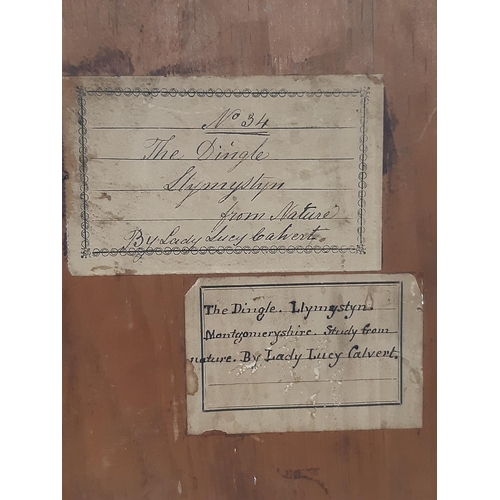 No 34
The Dingle
Llymystyn
from Nature
By Lady Lucy Calvert.
The Dingle. Llymystyn.
Montgomeryshire. Study from
nature. By Lady Lucy Calvert.